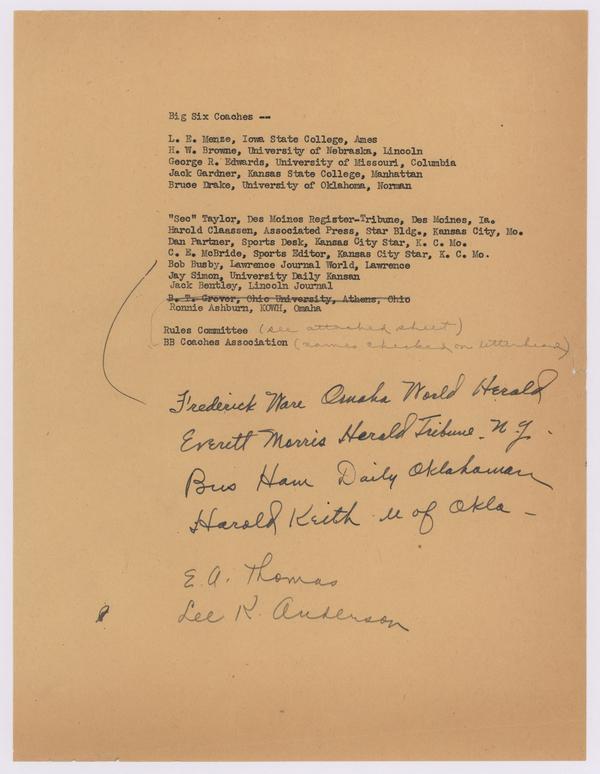 Big Six Coaches --
L. E. Menze, Iowa State College, Ames
H. W. Browne, University of Nebraska, Lincoln
George R. Edwards, University of Missouri, Columbia
Jack Gardner, Kansas State College, Manhattan
Bruce Drake, University of Oklahoma, Norman
"Sec" Taylor, Des Moines Register-Tribune, Des Moines, Ia.
Harold Claassen, Associated Press, Star Bldg., Kansas City, Mo.
Dan Partner, Sports Desk, Kansas City Star, K. C. Mo.
C. E. McBride, Sports Editor, Kansas City Star, K. C. Mo.
Bob Busby, Lawrence Journal World, Lawrence
Jay Simon, University Daily Kansan
Jack Bentley, Lincoln Journal
B. T. Grover, Ohio University, Athens, Ohio
Ronnie Ashburn, KOWH, Omaha
Rules Committee (see attached sheet)
BB Coaches Association (names checked on letterhead)
Frederick Ware Omaha World Herald
Everett Morris Herald Tribune - N.Y. -
Bus Ham Daily Oklahoman
Harold Keith U of Okla -
E. A. Thomas
Lee K. Anderson